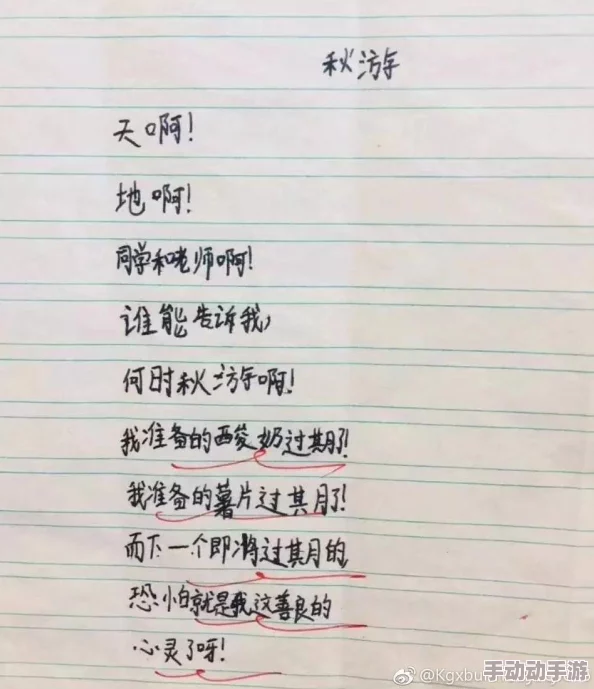 秋游
天啊！
地啊！
同学和老师啊！
谁能告诉我，
何时秋游啊！
我准备的酸奶过期了！
我准备的薯片过期了！
而下一个即将过期的，
恐怕就是我这善良的
心灵了呀！
手动动手游